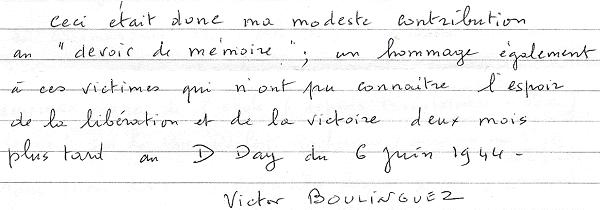 Ceci était donc ma modeste contribution
au "devoir de mémoire."; un hommage également
à ces victimes qui n'ont pu connaître l'espoir
de la libération et de la victoire deux mois
plus tard au D Day du 6 juin 1944-
Victor BOULINGUEZ